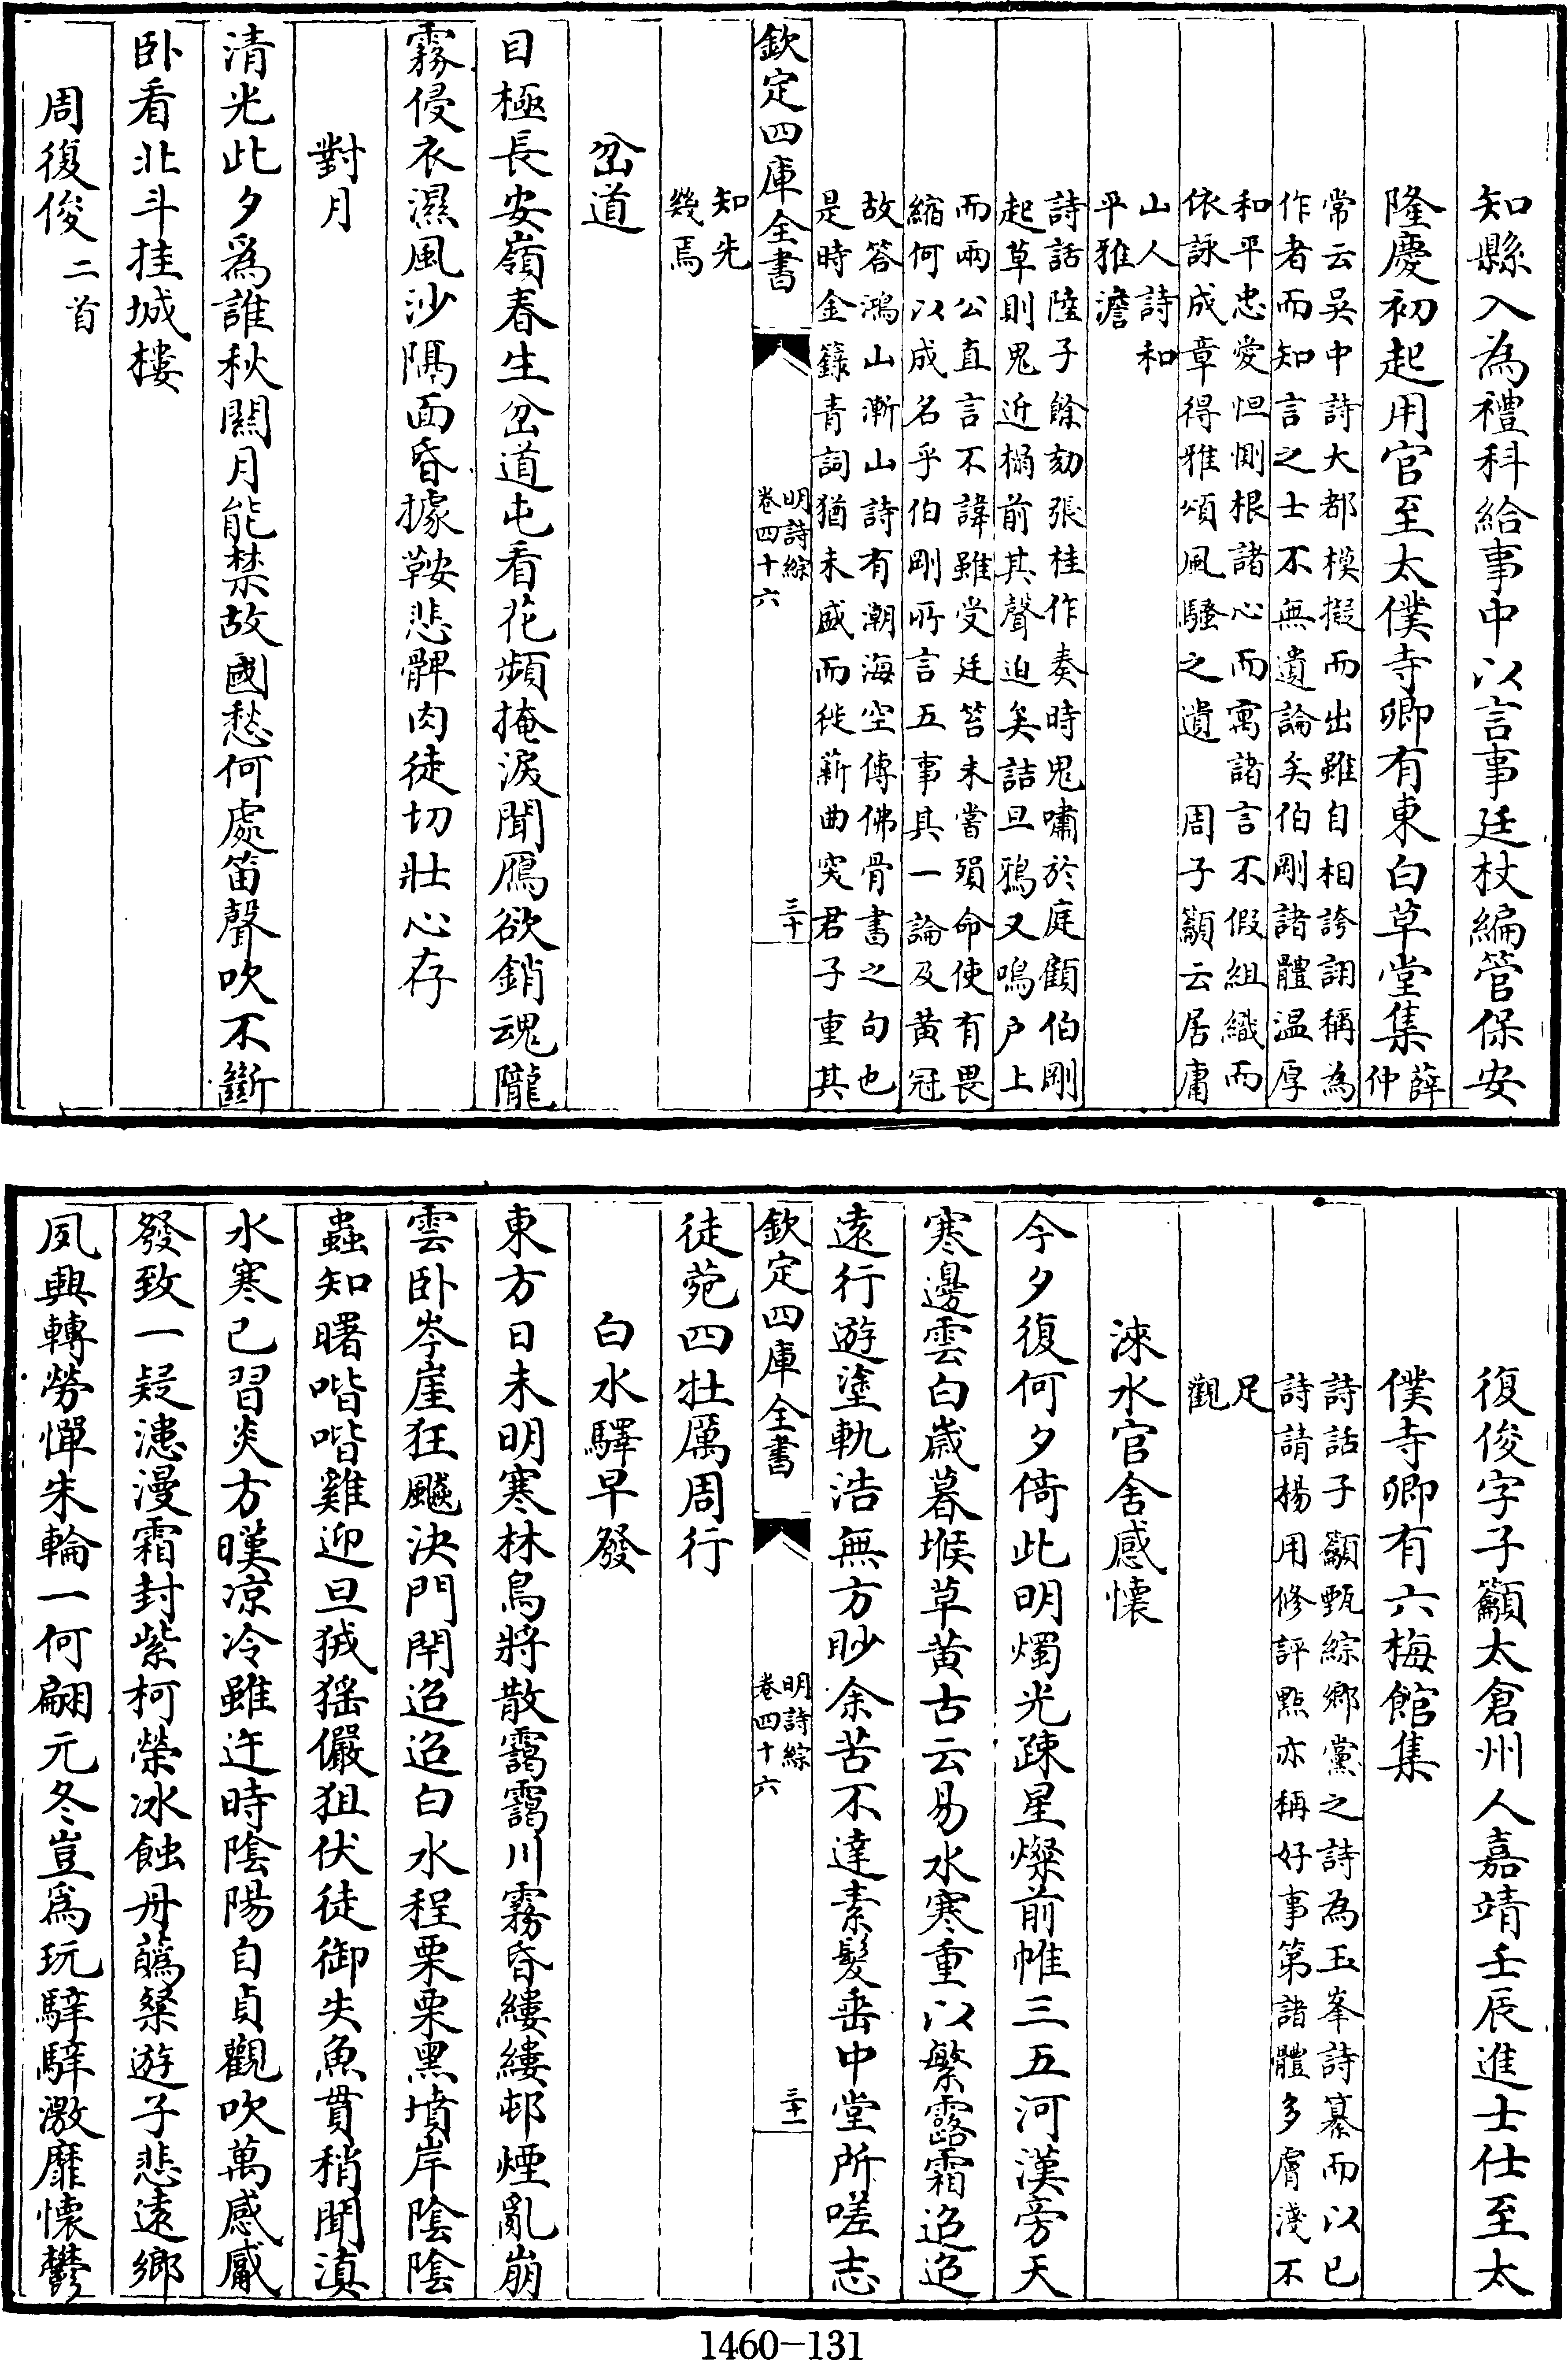 知縣入為禮科給事中以言事廷杖編管保安
隆慶初起用官至太僕寺卿有東白草堂集
薛
仲
常云吳中詩大都模擬而出雖自相誇詡稱為
作者而知言之士不無遺論矣伯剛諸體温厚
和平忠愛怛惻根諸心而寓諸言不假組織而
依詠成章得雅頌風騷之遺 周子籲云居庸
山人詩和
平雅澹
詩話陸子餘劾張桂作奏時鬼嘯於庭顧伯剛
起草則鬼近榻前其聲迫矣詰旦鴉又鳴户上
而兩公直言不諱雖受廷笞未嘗殞命使有畏
縮何以成名乎伯剛所言五事其一論及黄冠
故答鴻山漸山詩有潮海空傳佛骨書之句也
是時金籙青詞猶未盛而徙薪曲突君子重其
欽定四庫全書
明詩綜
卷四十六
三十
知先
幾焉
岔道
目極長安嶺春生岔道屯看花頻掩淚聞鴈欲銷魂隴
霧侵衣濕風沙隔面昏據鞍悲髀肉徒切壯心存
對月
清光此夕爲誰秋關月能禁故國愁何處笛聲吹不斷
卧看北斗挂城樓
周復俊二首
復俊字子籲太倉州人嘉靖壬辰進士仕至太
僕寺卿有六梅館集
詩話子籲甄綜鄉黨之詩為玉峯詩纂而以已
詩請楊用修評點亦稱好事第諸體多膚淺不
足
觀
淶水官舍感懷
今夕復何夕倚此明燭光疎星燦前帷三五河漢旁天
寒邊雲白歲暮堠草黄古云易水寒重以繁露霜迢迢
遠行遊塗軌浩無方眇余苦不達素髮垂中堂所嗟志
欽定四庫全書
明詩綜
卷四十六
三十一
徒菀四牡厲周行
白水驛早發
東方日未明寒林鳥將散靄靄川霧昏縷縷邨煙亂崩
雲卧岑崖狂飈決門閈迢迢白水程栗栗黑墳岸陰陰
蟲知曙喈喈雞迎旦狨猺儼狙伏徒御失魚貫稍聞滇
水寒已習炎方暵凉冷雖迕時陰陽自貞觀吹萬感㒹
發致一疑漶漫霜封紫柯榮冰蝕丹蘤粲遊子悲遠鄉
夙興轉勞憚朱輪一何翩元冬豈爲玩騂騂激靡懷鬱
1460-131